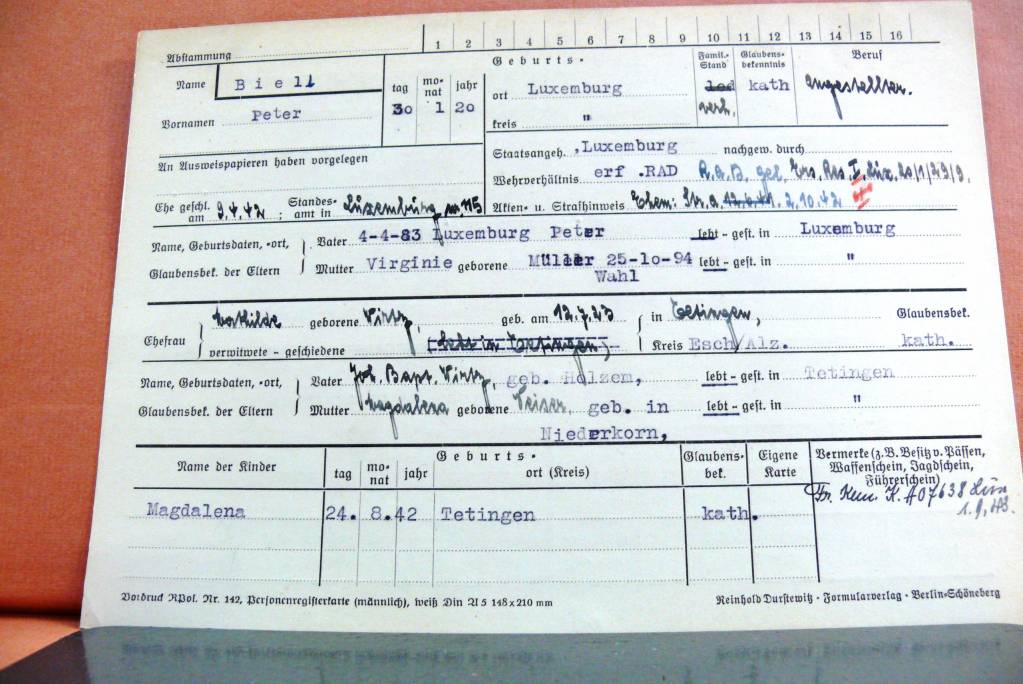 Abstammung 1 2 3 4 5 6 7 8 9 10 11 12 13 14 15 16
Name Biell
Vornamen Peter
Geburts-
tag monat jahr
30 1 20
ort Luxemburg
kreis "
Famil.-Stand
led
verh.
Glaubens-bekenntnis
kath
Beruf
Angestellter.
An Ausweispapieren haben vorgelegen
Staatsangeh. ,Luxemburg nachgew. durch
Wehrverhältnis erf .RAD R.A.D. gel. Ers. Res. I. Lux. 20/1/29/9.
Ehe geschl. am 9.4.42 ; Standesamt in Luxemburg n. 115
Akten- u. Strafhinweis Ehem: Str. a. 2.10.42
Name, Geburtsdaten, -ort, Vater 4-4-83 Luxemburg Peter lebt - gest. in Luxemburg
Glaubensbek. der Eltern Mutter Virginie geborene Müller 25-10-94 lebt - gest. in "
Wahl
Ehefrau Mathilde geborene Wirtz, geb. am 12.7.23 in Tetingen, Glaubensbek.
verwitwete - geschiedene (lebt in Tetingen) Kreis Esch/Alz. kath.
Name, Geburtsdaten, -ort, Vater Joh. Bapt. Wirtz, geb. Holzem, lebt - gest. in Tetingen
Glaubensbek. der Eltern Mutter Magdalena geborene geb. in lebt - gest. in "
Niederkorn,
Name der Kinder
Geburts-
tag monat jahr ort (Kreis)
Glaubens-bek.
Eigene Karte
Vermerke (z.B. Besitz v. Pässen,
Waffenschein, Jagdschein,
Führerschein)
Magdalena 24. 8.42 Tetingen kath.
Kenn. K. A07638 Lux
1.9.43.
Vordruck RPol. Nr. 142, Personenregisterkarte (männlich), weiß Din A 5 148x210 mm
Reinhold Durstewitz · Formularverlag · Berlin-Schöneberg